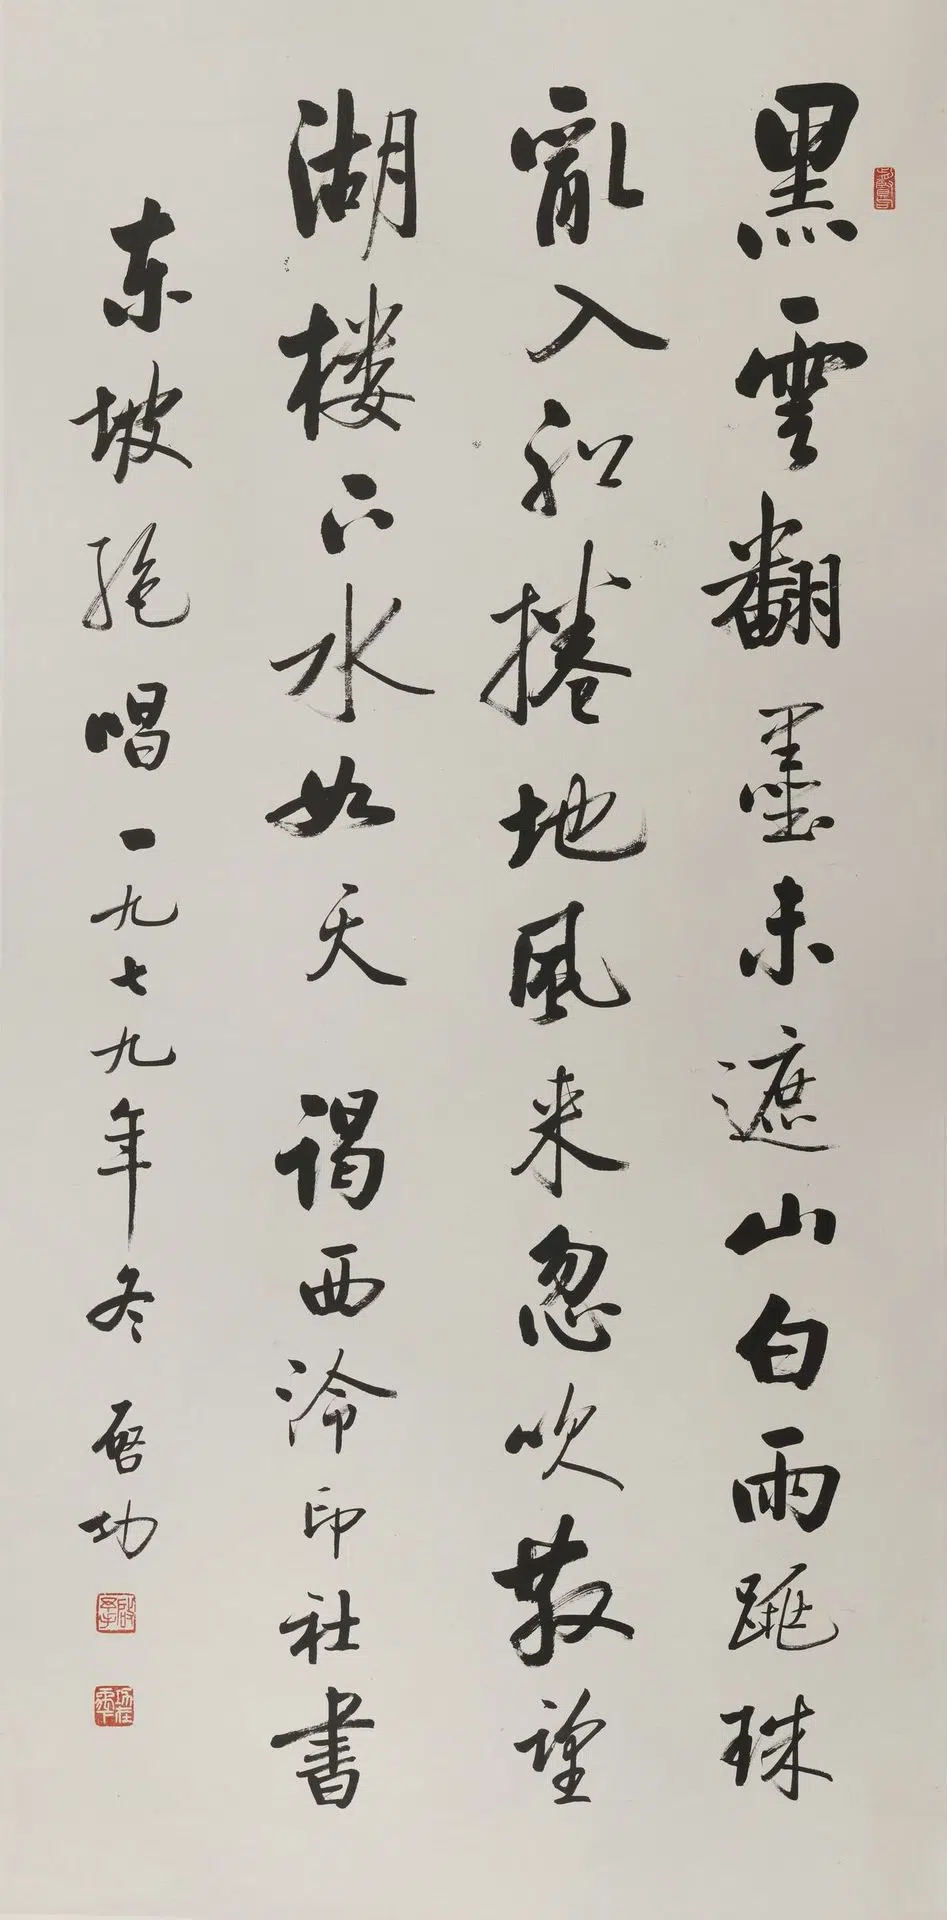 黑雲翻墨未遮山白雨跳珠
亂入船捲地風来忽吹散望
湖楼下水如天 谒西泠印社書
东坡绝唱一九七九年冬 启功